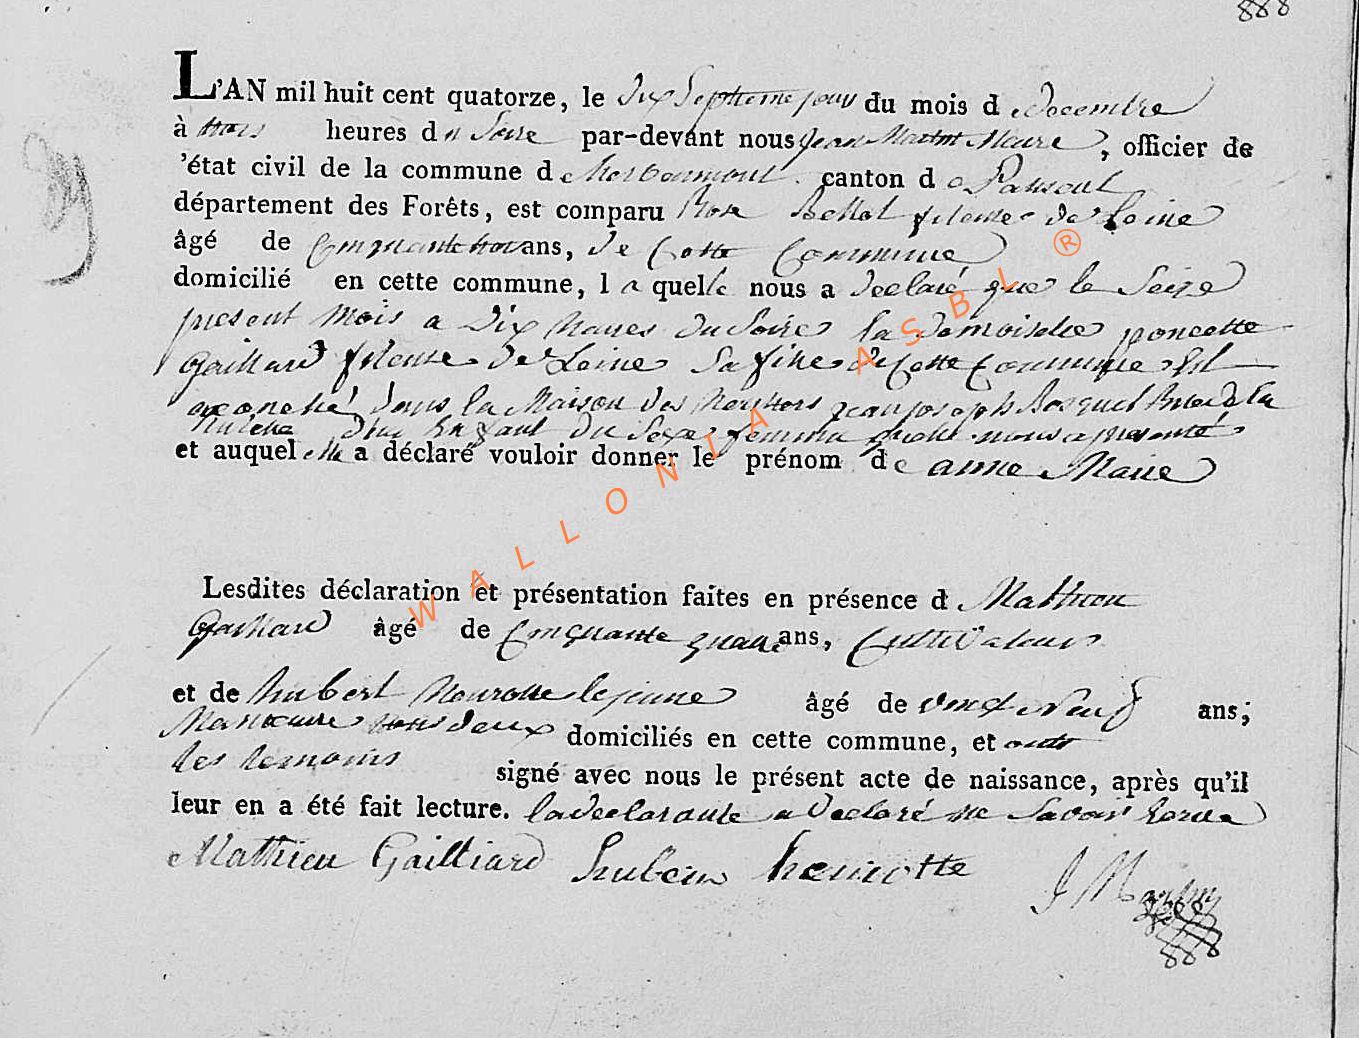 888
L'AN mil huit cent quatorze, le dix Septieme jour du mois d e Decembre
à trois heures d u Soire par-devant nous Jean Martin Maire, officier de
'état civil de la commune d e herbeumont canton d e Paliseul
département des Forêts, est comparu Rose fileuse de Leine
âgé de Cinquante trois ans, de Cette Commune
domicilié en cette commune, l a quelle nous a declaré que le Seize
present mois a Dix heures du Soire la demoiselle poncette
Gailliard fileuse de Leine Sa fille de Cette Commune Est
acouché dans la Maison des heritiers jean joseph Bosquet
d'un Enfant du Sexe feminin quelle nous a presenté
et auquel elle a déclaré vouloir donner le prénom d e anne Marie
Lesdites déclaration et présentation faites en présence d e Mathieu
Gailliard âgé de Cinquante quatre ans, Cultivateur
et de hubert henrotte le jeune âgé de vingt Neuf ans;
Manoeuvre tous deux domiciliés en cette commune, et ont
les temoins signé avec nous le présent acte de naissance, après qu'il
leur en a été fait lecture. la declarante a Declaré ne Savoir
Mathieu Gailliard hubert henrotte J Martin
888
WALLONIA ASBL ®